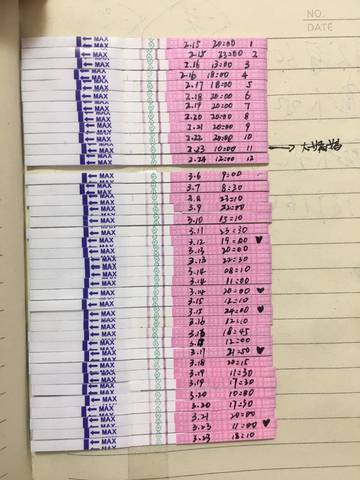 NO.
DATE
MAX 2.15 20:00 1
MAX 2.15 23:00 2
MAX 2.16 13:00 3
MAX 2.16 18:00 4
MAX 2.17 18:00 5
MAX 2.18 20:00 6
MAX 2.19 20:00 7
MAX 2.20 20:00 8
MAX 2.21 20:00 9
MAX 2.22 20:00 10
MAX 2.23 10:00 11
MAX 2.24 12:00 12
MAX 3.6 9:00
MAX 3.7 8:30
MAX 3.8 23:10
MAX 3.9 22:00
MAX 3.10 15:10
MAX 3.11 23:30
MAX 3.12 19:00 ♥
MAX 3.13 20:00
MAX 3.13 22:30
MAX 3.14 08:10
MAX 3.14 11:00
MAX 3.14 20:00 ♥
MAX 3.15 12:10
MAX 3.15 24:00 ♥
MAX 3.16 12:10
MAX 18:45
MAX 12:00
MAX 3.17 21:50 ♥
MAX 3.18 20:15
MAX 3.19 11:30
MAX 3.19 17:30
MAX 3.20 10:00
MAX 3.20 17:30
MAX 3.21 20:00
MAX 3.23 11:00 ♥
MAX 3.23 18:10